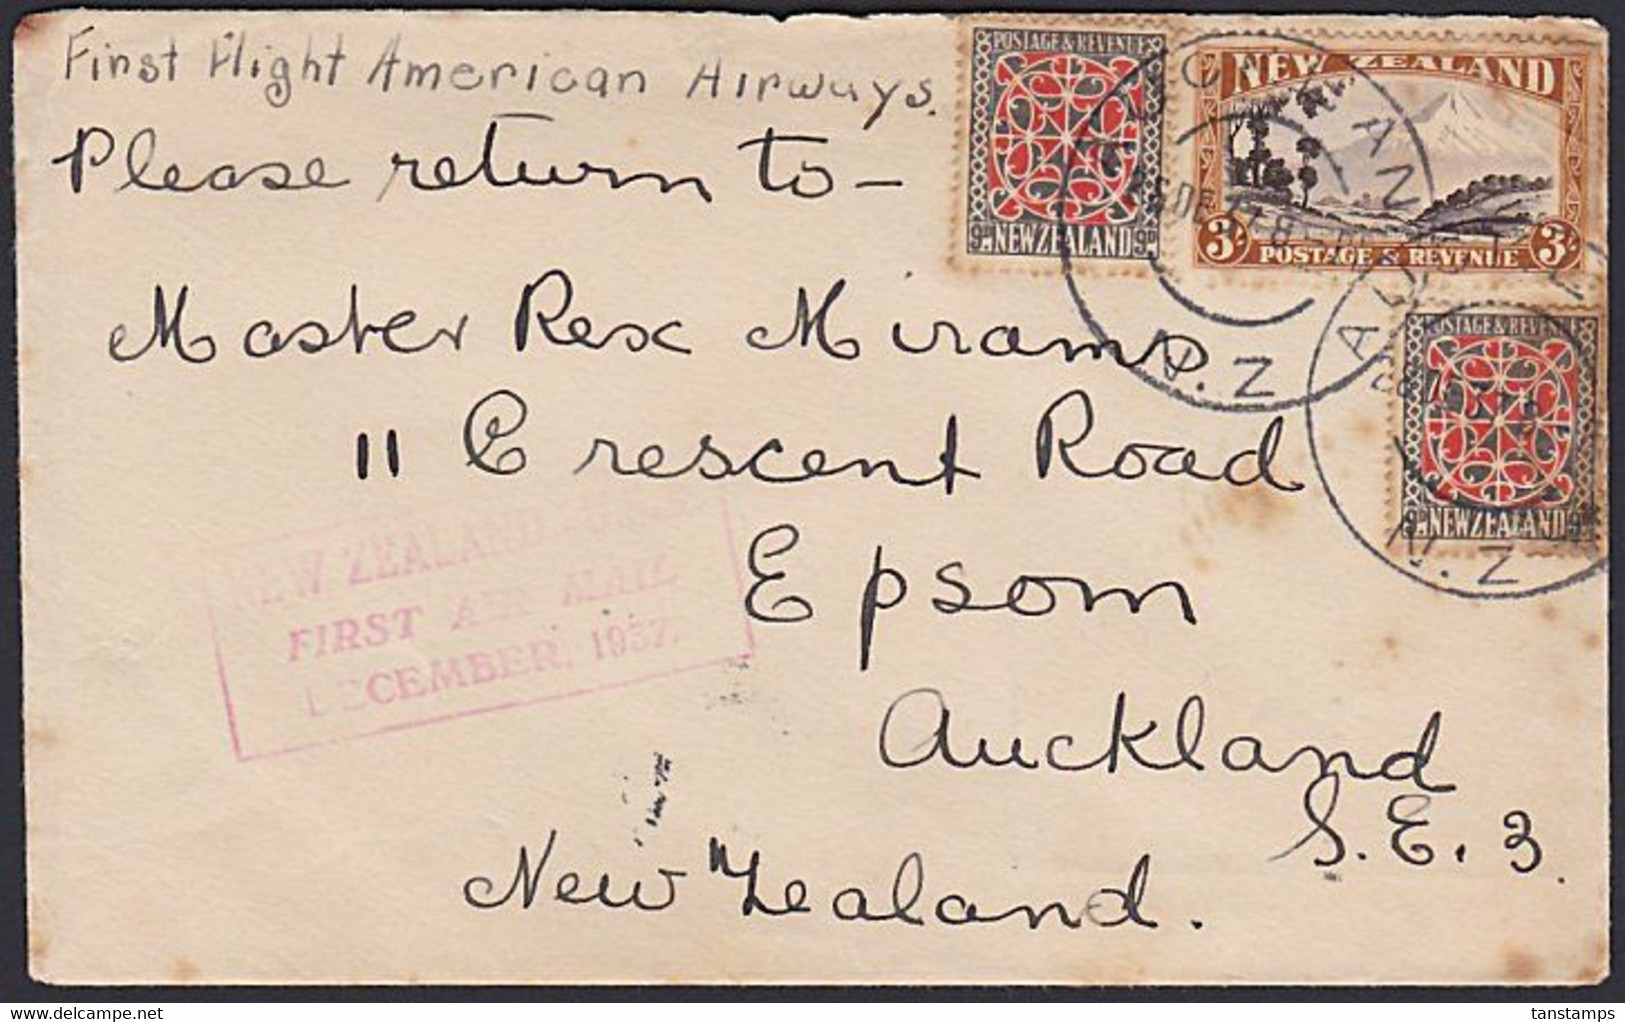 First Flight American Airways.
Please return to —
Master Rex Mirams
11 Crescent Road
Epsom
Auckland
S.E. 3.
New Zealand.
POSTAGE & REVENUE
9D NEW ZEALAND 9D
NEW ZEALAND
3/- 3/-
POSTAGE & REVENUE
N.Z
POSTAGE & REVENUE
9D NEW ZEALAND 9D
N.Z
NEW ZEALAND
FIRST AIR MAIL
DECEMBER, 1937.
tanstamps